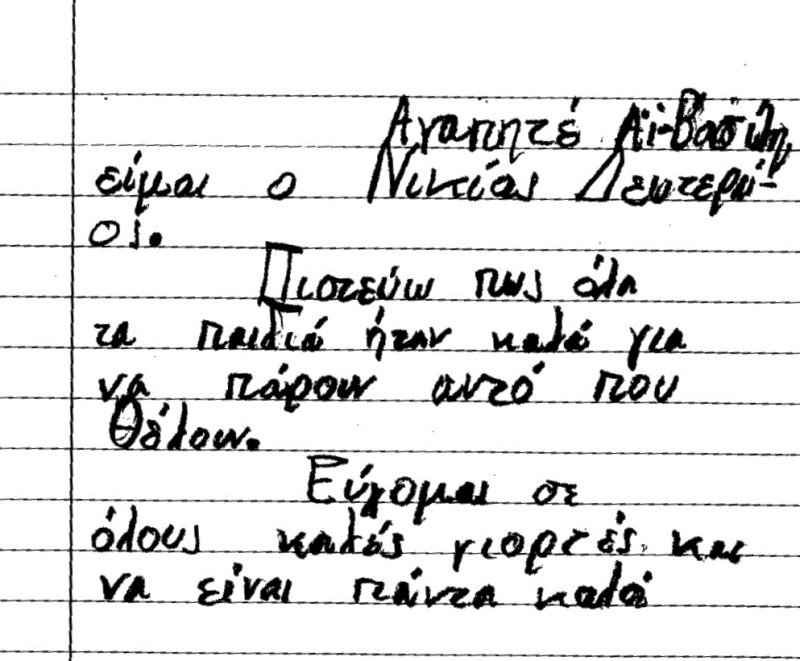 Αγαπητέ Αϊ-Βασίλη
είμαι ο Νικίας Δευτεραί-
ος.
Πιστεύω πως όλα
τα παιδιά ήταν καλά για
να πάρουν αυτό που
θέλουν.
Εύχομαι σε
όλους καλές γιορτές και
να είναι πάντα καλά